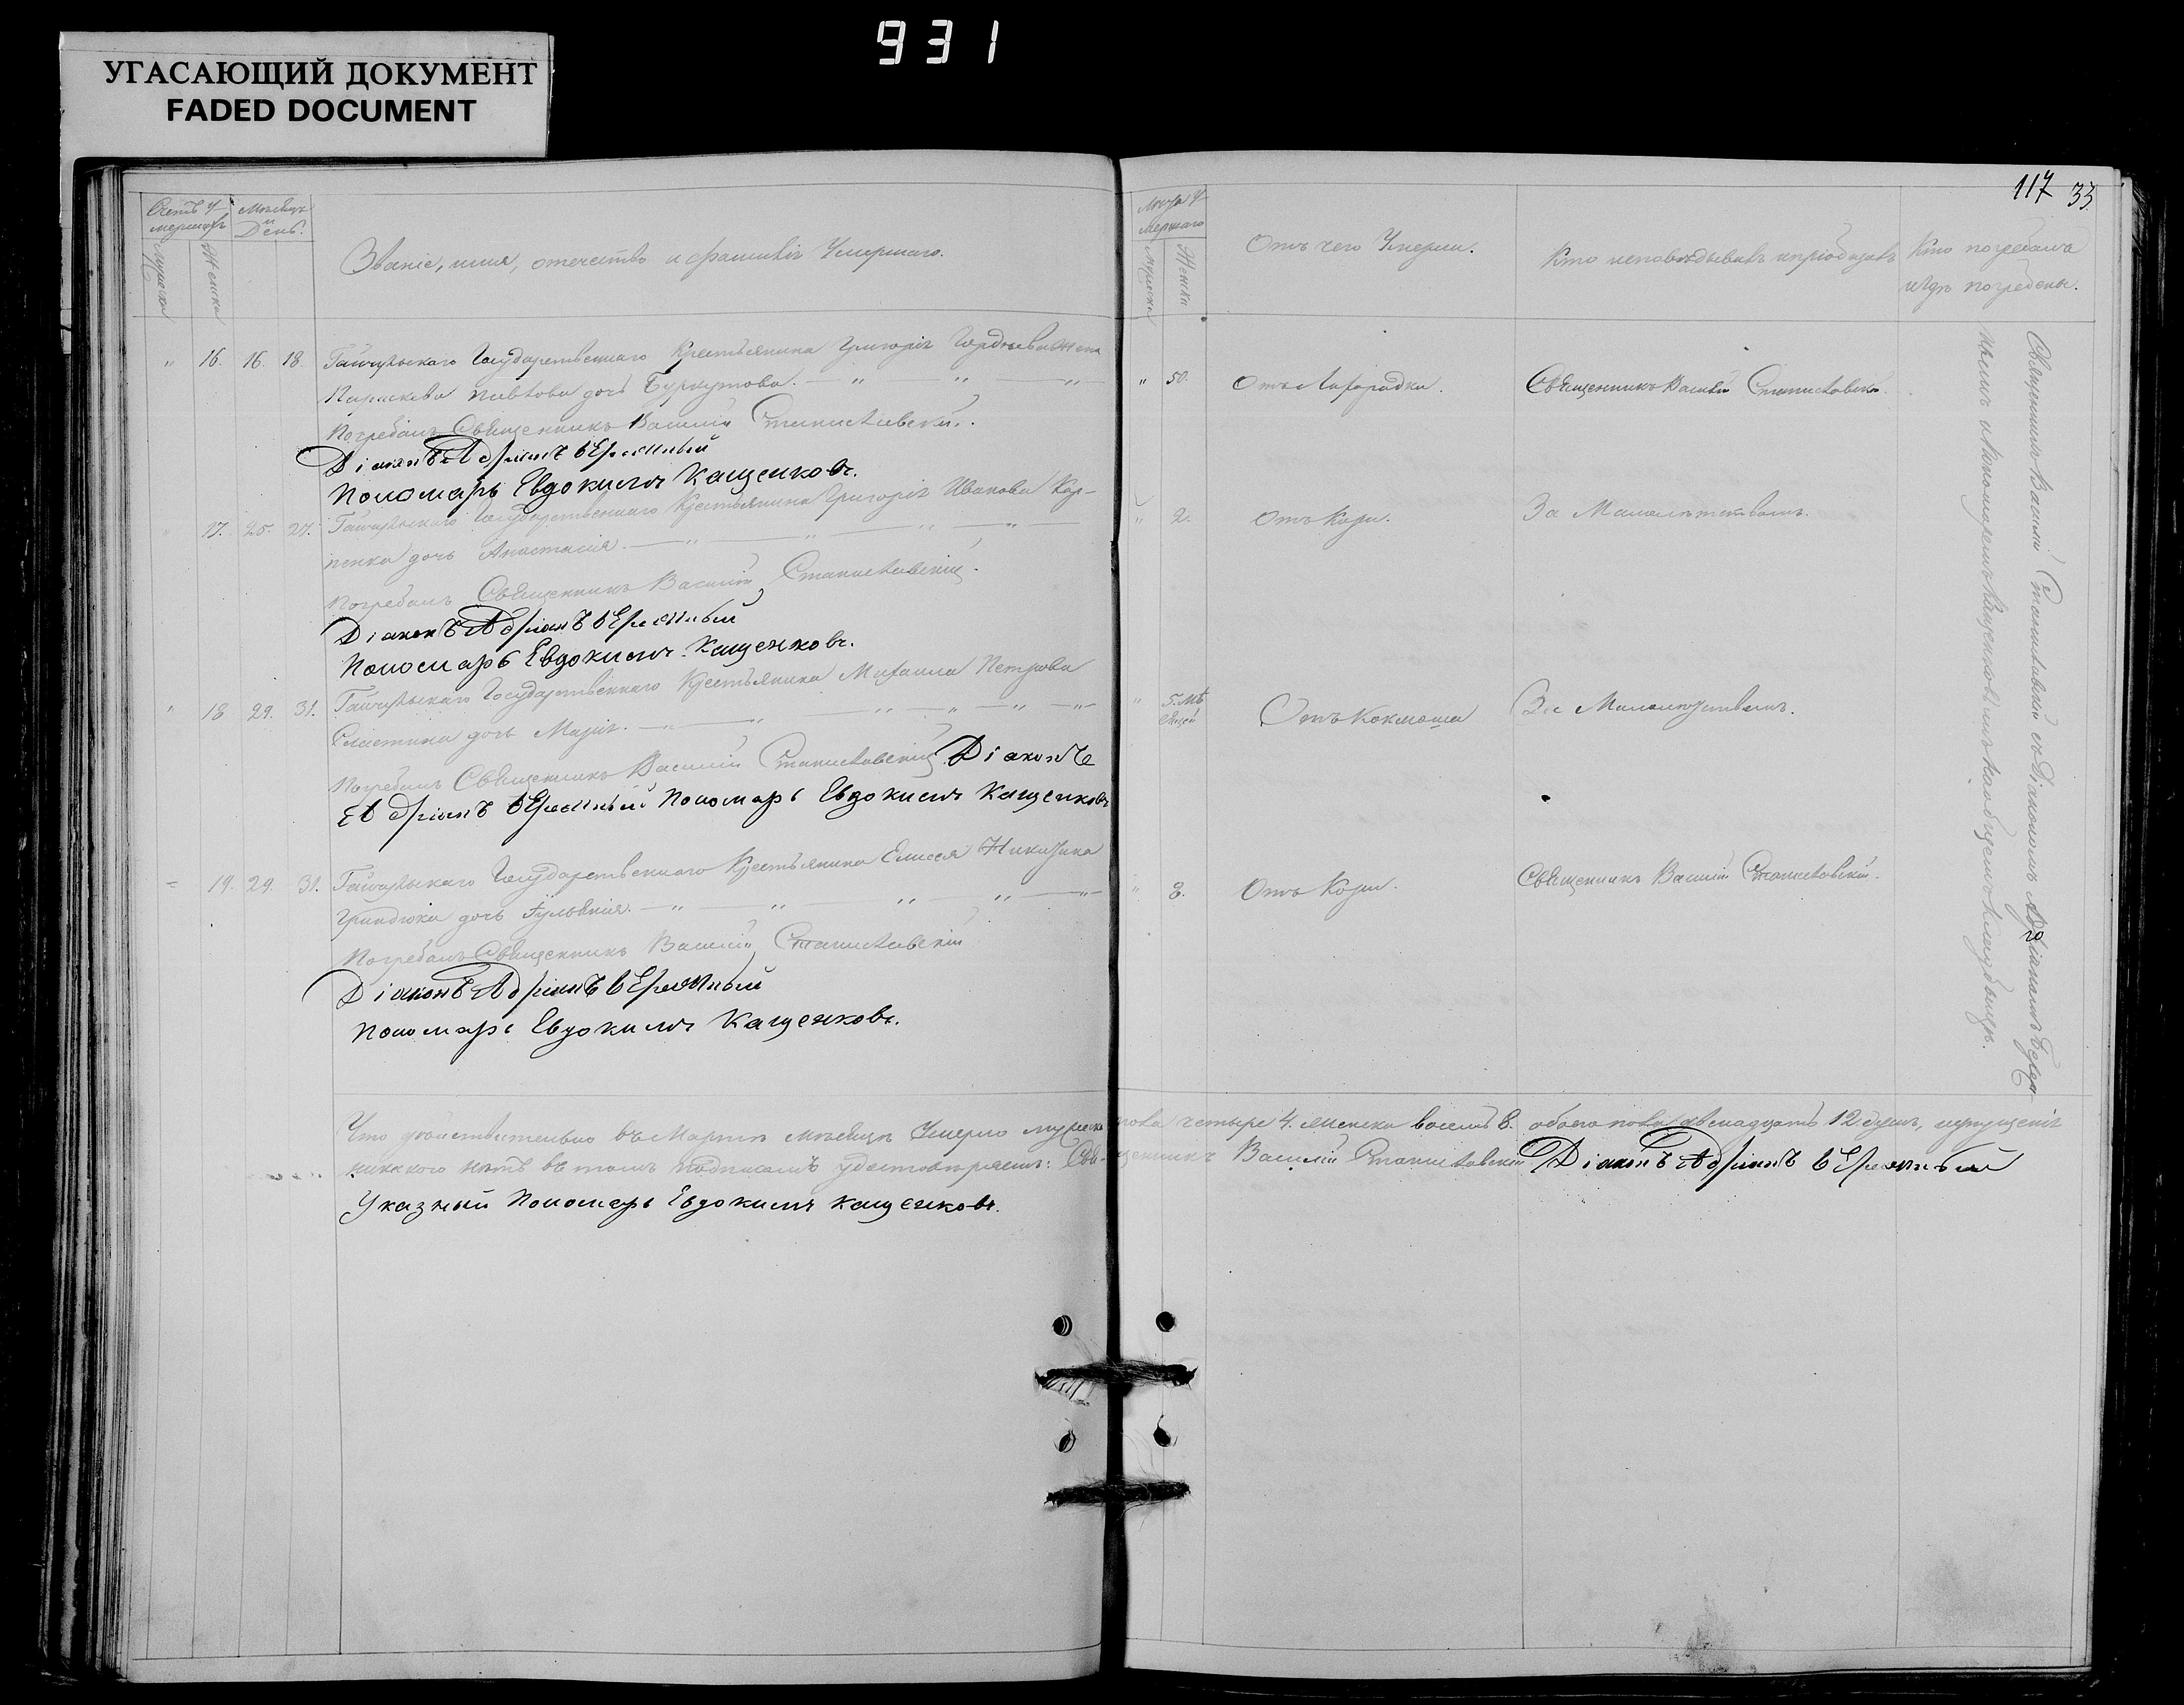 931
УГАСАЮЩИЙ ДОКУМЕНТ
FADED DOCUMENT
117 33.
Счетъ у-
мершихъ
Мѣсяцъ
и
День.
Мужеска
Женска
Званіе, имя, отечество и фамилія Умершаго.
Лѣта у-
мершаго
Мужеска
Женска
Отъ чего Умерли.
Кто исповѣдывалъ и пріобщалъ
Кто погребалъ
и гдѣ погребены.
" 16. 16. 18. Государственнаго Крестьянина Григорія Гордѣева жена
Параскева Павлова дочь
" 50. Отъ Лихорадки. Священникъ Василій Станиславскій.
Погребалъ Священникъ Василій Станиславскій.
Діаконъ Адріанъ
Пономарь Евдокимъ Кащенковъ.
17. 25. 27. Государственнаго Крестьянина Григорія Иванова Кар-
пенка дочь Анастасія.
" 2. Отъ Кори. За Малолѣтствомъ.
Погребалъ Священникъ Василій Станиславскій.
Діаконъ Адріанъ
Пономарь Евдокимъ Кащенковъ.
" 18 29. 31. Государственнаго Крестьянина Михаила Петрова
дочь Марія.
" 5. мѣ
сяцей
Отъ Коклюша За Малолѣтствомъ.
Погребалъ Священникъ Василій Станиславскій Діаконъ
Адріанъ Пономарь Евдокимъ Кащенковъ
19. 29. 31. Государственнаго Крестьянина Елисея
дочь
" 3. Отъ Кори. Священникъ Василій Станиславскій.
Погребалъ Священникъ Василій Станиславскій
Діаконъ Адріанъ
Пономарь Евдокимъ Кащенковъ.
Священникъ Василій Станиславскій съ Діакономъ Адріаномъ
Пономаремъ Кащенковымъ на общемъ кладбищѣ.
Что дѣйствительно въ Мартѣ мѣсяцѣ Умерло мужеска пола четыре 4. женска восемь 8. обоего пола двенадцать 12. душъ,
никакого нѣтъ въ томъ подписомъ удостовѣряемъ: Священникъ Василій Станиславскій Діаконъ Адріанъ
Указный Пономарь Евдокимъ Кащенковъ.